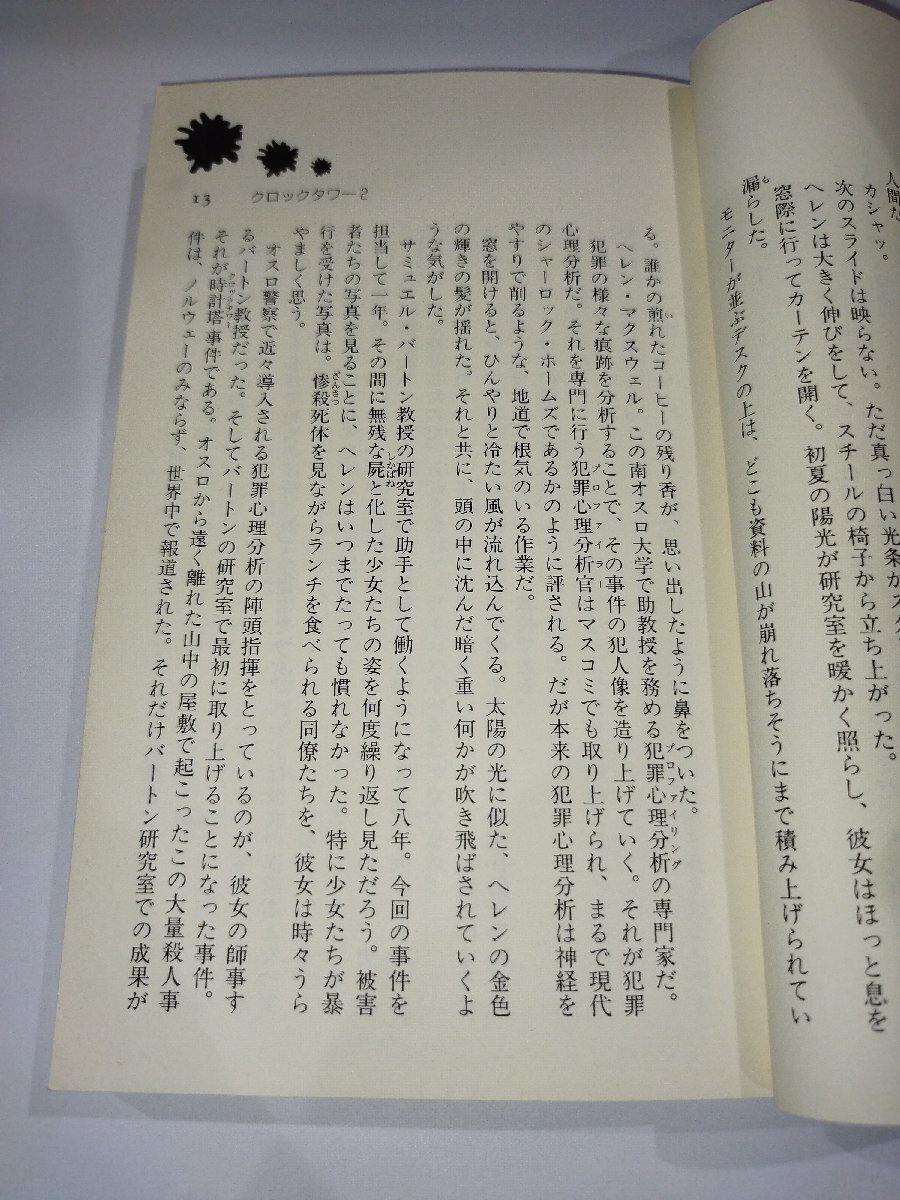 人間だ
カシャッ。
次のスライドは映らない。ただ真っ白い光条が
ヘレンは大きく伸びをして、スチールの椅子から立ち上がった。
窓際に行ってカーテンを開く。初夏の陽光が研究室を暖かく照らし、彼女はほっと息を
漏らした。
モニターが並ぶデスクの上は、どこも資料の山が崩れ落ちそうにまで積み上げられてい
13 クロックタワー2
る。誰かの煎れたコーヒーの残り香が、思い出したように鼻をついた。
ヘレン・マクスウェル。この南オスロ大学で助教授を務める犯罪心理分析の専門家だ。
犯罪の様々な痕跡を分析することで、その事件の犯人像を造り上げていく。それが犯罪
心理分析だ。それを専門に行う犯罪心理分析官はマスコミでも取り上げられ、まるで現代
のシャーロック・ホームズであるかのように評される。だが本来の犯罪心理分析は神経を
やすりで削るような、地道で根気のいる作業だ。
窓を開けると、ひんやりと冷たい風が流れ込んでくる。太陽の光に似た、ヘレンの金色
の輝きの髪が揺れた。それと共に、頭の中に沈んだ暗く重い何かが吹き飛ばされていくよ
うな気がした。
サミュエル・バートン教授の研究室で助手として働くようになって八年。今回の事件を
担当して一年。その間に無残な屍と化した少女たちの姿を何度繰り返し見ただろう。被害
者たちの写真を見るごとに、ヘレンはいつまでたっても慣れなかった。特に少女たちが暴
行を受けた写真は。惨殺死体を見ながらランチを食べられる同僚たちを、彼女は時々うら
やましく思う。
オスロ警察で近々導入される犯罪心理分析の陣頭指揮をとっているのが、彼女の師事す
るバートン教授だった。そしてバートンの研究室で最初に取り上げることになった事件。
それが時計塔事件である。オスロから遠く離れた山中の屋敷で起こったこの大量殺人事
件は、ノルウェーのみならず、世界中で報道された。それだけバートン研究室での成果が